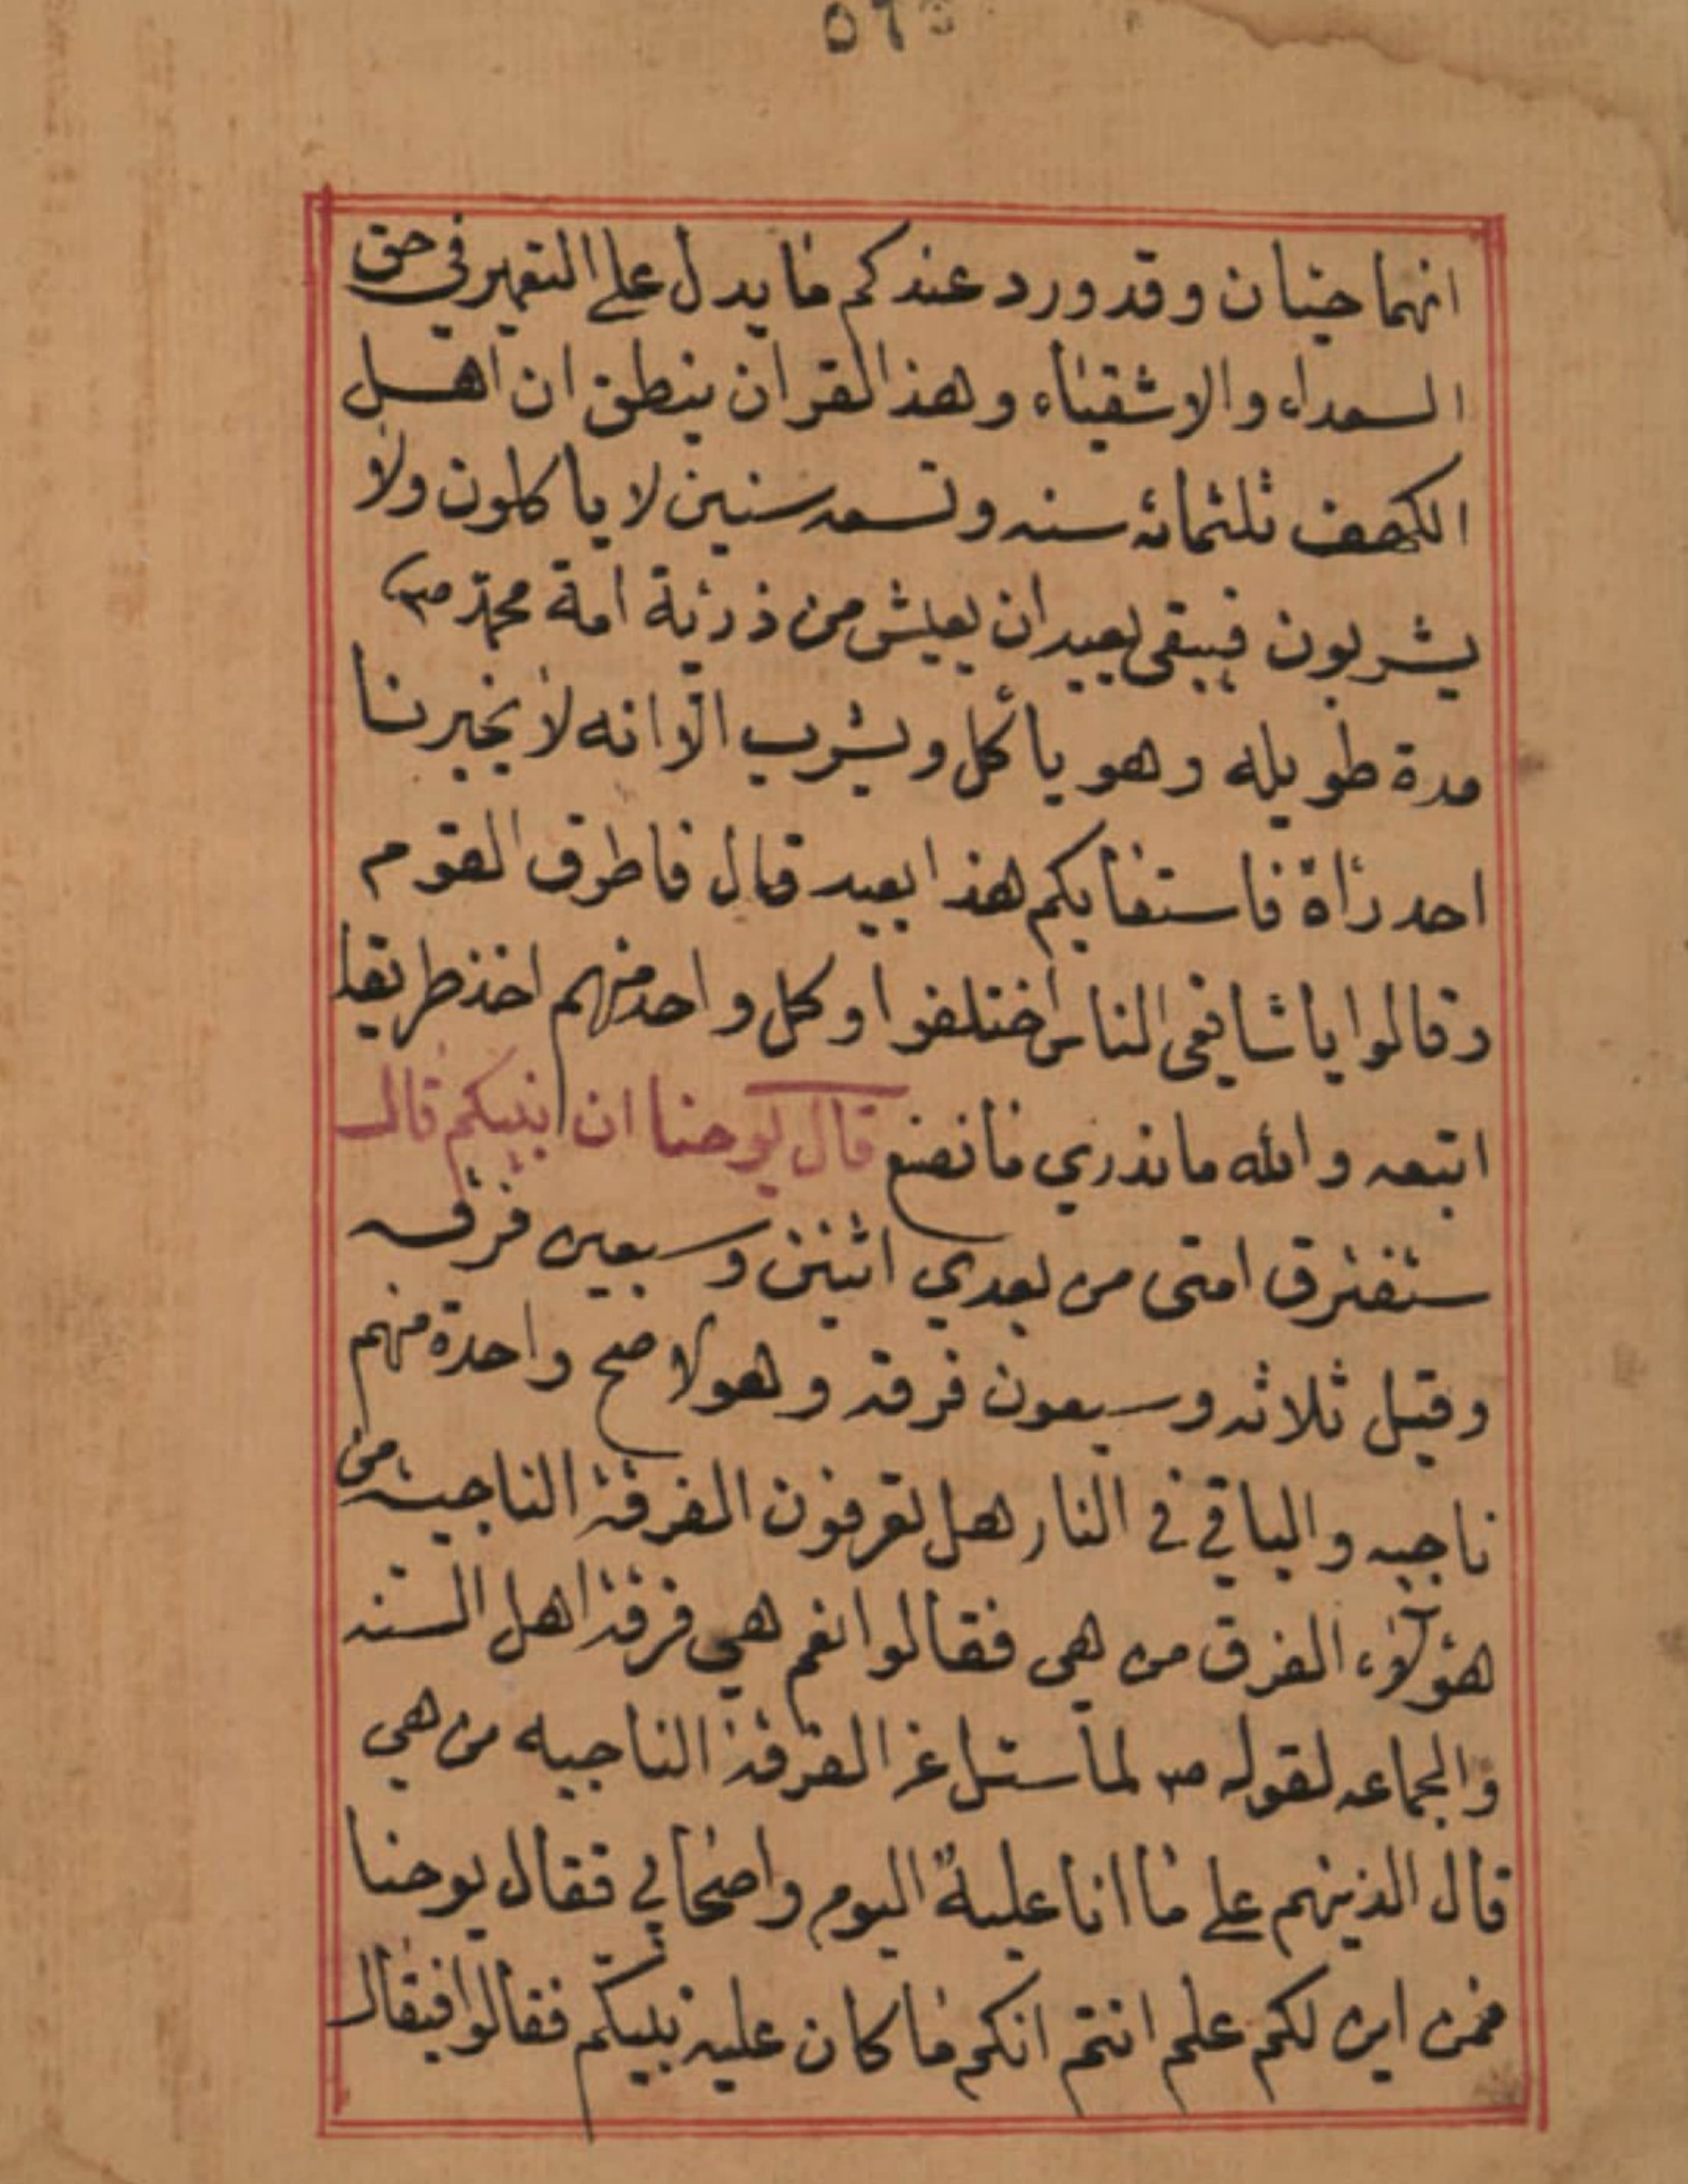 انهما حيان وقد ورد عندكم ما يدل على التعمير في حق
السعداء والاشقياء وهذا القران ينطق ان اهل
الكهف ثلثمائه سنه وتسعه سنين لا ياكلون ولا
يشربون فيبقى بعيد ان يعيش من ذرية امة محمد ص
مدة طويله وهو ياكل ويشرب الا انه لا يخبرنا
احد راة فاستفايكم هذا بعيد قال فاطرق القوم
وقالوا يا شافعى الناس اختلفوا وكل واحد منهم اخذ طريقا
اتبعه والله ما ندري ما نصنع قال يوحنا ان نبيكم قال
ستفترق امتى من بعدي اثنين وسبعين فرقه
وقيل ثلاثه وسبعون فرقه وهو لاصح واحدة منهم
ناجيه والباقي في النار هل تعرفون الفرقة الناجيه من
هؤلاء الفرق من هى فقالوا نعم هي فرقة اهل السنه
والجماعه لقوله ص لما سئل عن الفرقة الناجيه من هي
قال الذينهم على ما انا علية اليوم واصحابي فقال يوحنا
فمن اين لكم علم انتم انكم ما كان عليه نبيكم فقالوا فيقال